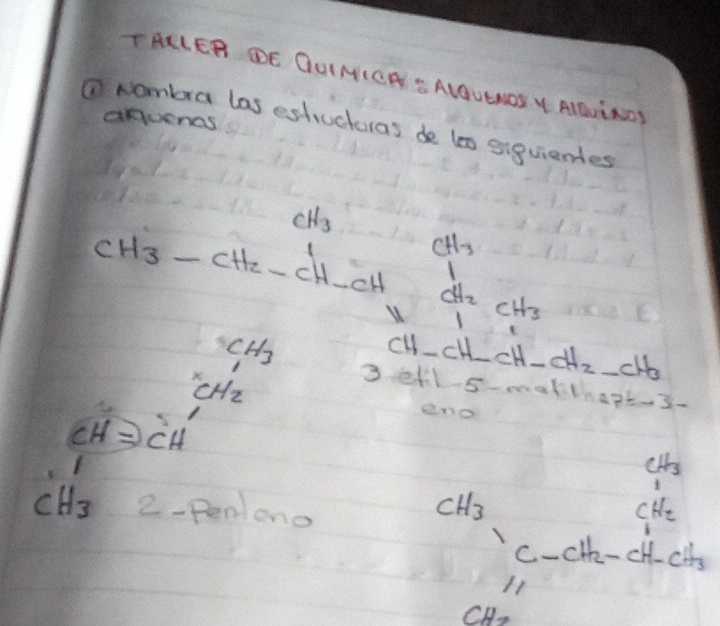 TALLER DE QUIMICA: ALQUENOS Y AlQUiNOS
① Nombra las estructuras de los siguientes
alquenos:
CH3
CH3 - CH2 - CH - CH
CH3
CH2 CH3
CH - CH - CH - CH2 - CH3
3 etil-5-metilhept-3-
eno
CH3
CH2
CH = CH
CH3 2-Penteno
CH3
CH2
CH3
C - CH2 - CH - CH3
CH2